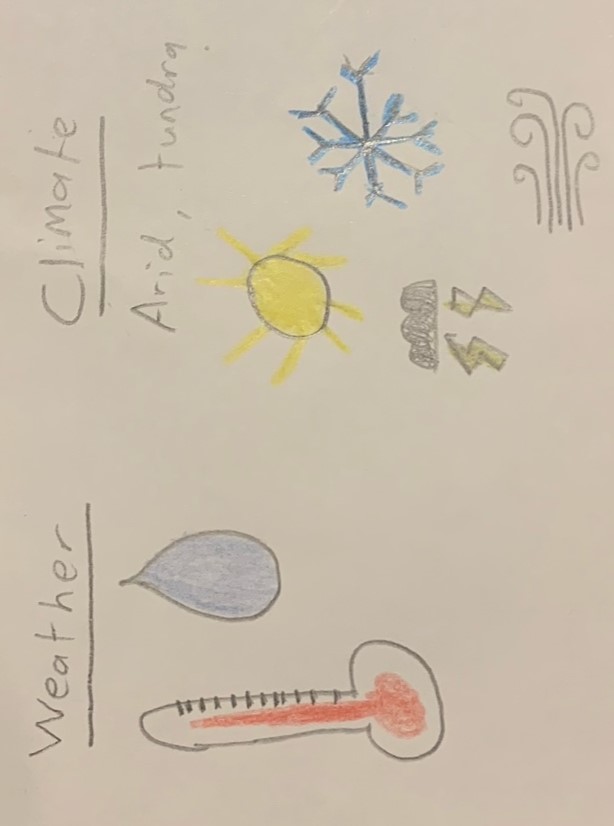 Weather
Climate
Arid, tundra